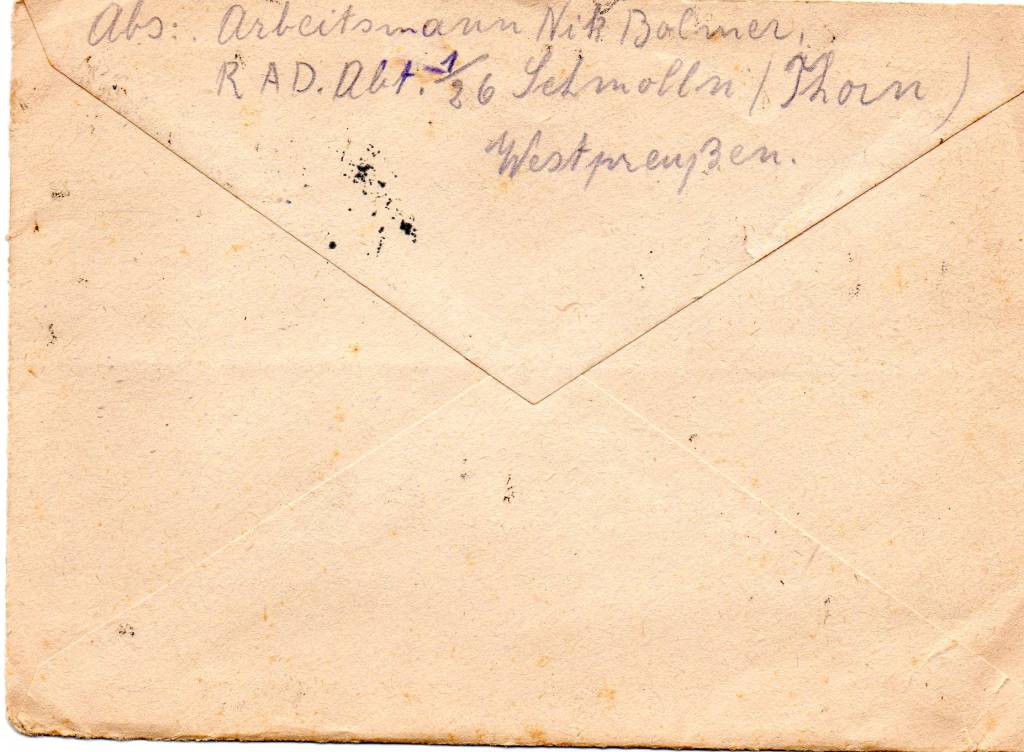 Abs: Arbeitsmann Nik Bolmer,
R A D. Abt. 1/26 Schmolln (Thorn)
Westpreußen.